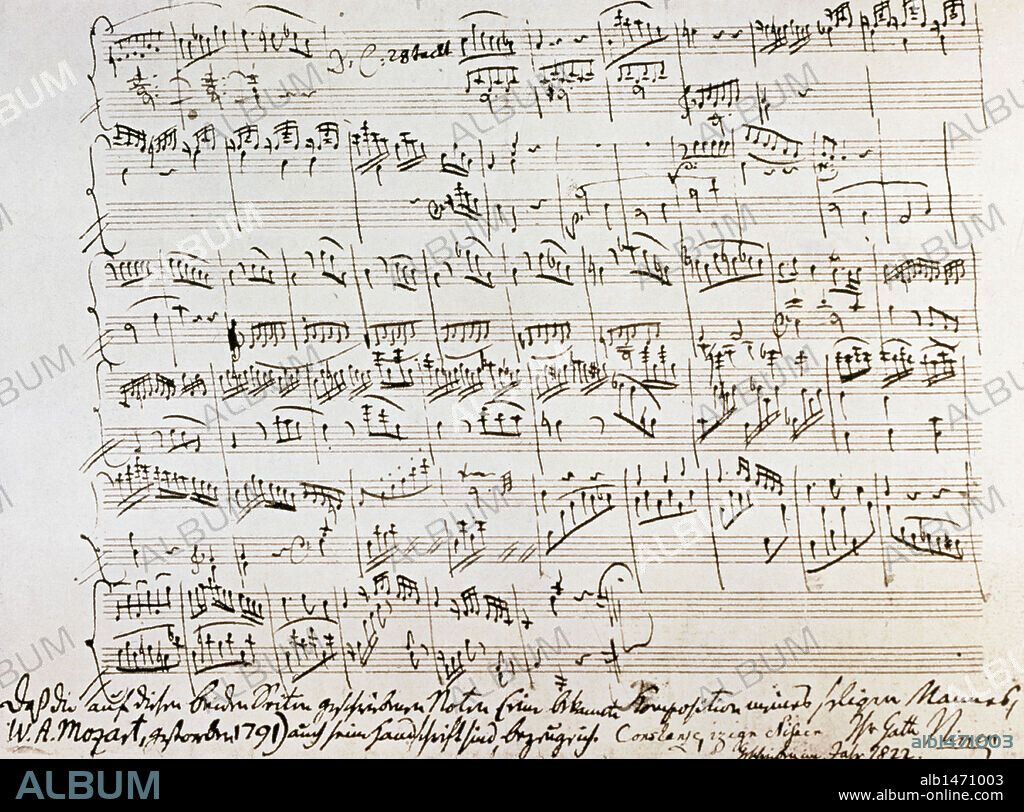 D. C. 28 tackt
Daß die auf diesen beiden Seiten geschriebenen Noten (eine bekannte Komposition meines seligen Mannes,
W. A. Mozart, gestorben 1791) auch seine Handschrift sind, bezeuge ich Constanze Ihr Gatte Nissen
im Jahr 1822.
alb1471003
ALBUM
alb1471003
www.album-online.com